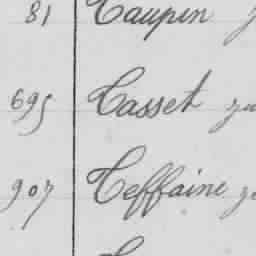 81 Taupin
695 Tasset
907 Teffaine